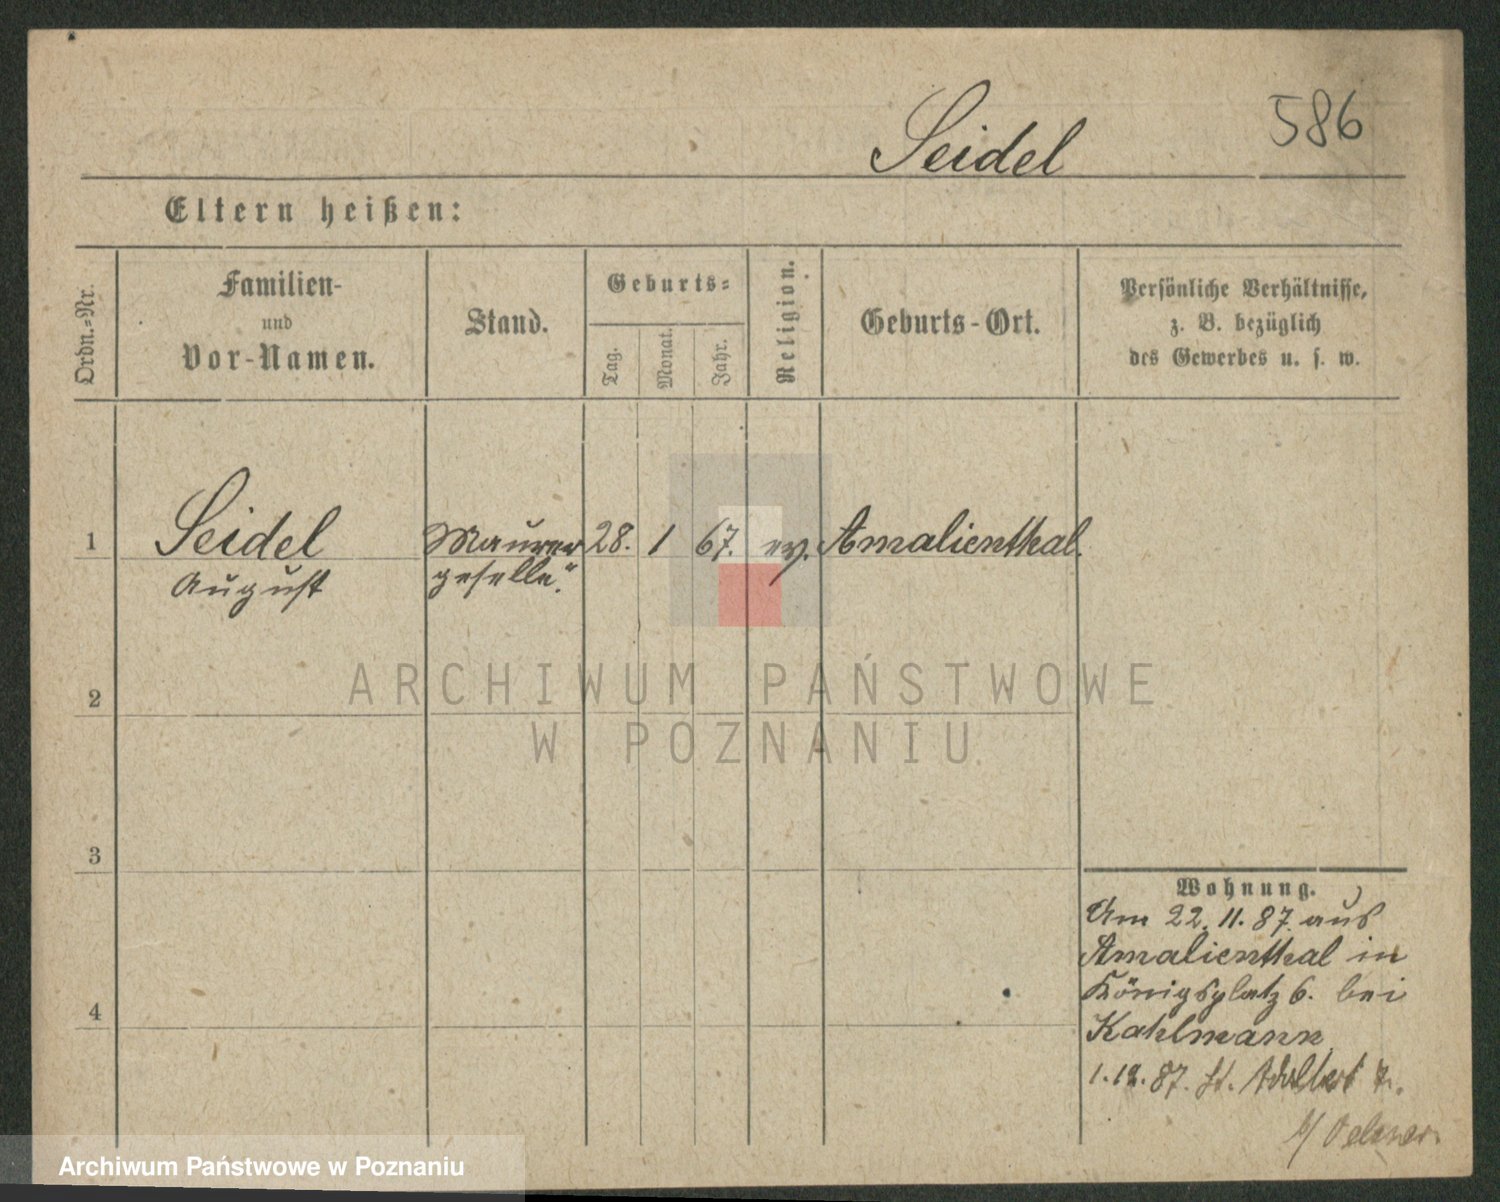 Seidel
586
Eltern heißen:
Ordn.-Nr.
Familien-
und
Vor-Namen.
Stand.
Geburts-
Tag.
Monat.
Jahr.
Religion.
Geburts-Ort.
Persönliche Verhältnisse,
z. B. bezüglich
des Gewerbes u. s. w.
1
Seidel
August
Maurer
geselle.
28.
1
67.
ev.
Amalienthal.
ARCHIWUM PAŃSTWOWE
W POZNANIU
2
3
4
Wohnung.
Am 22. 11. 87. aus
Amalienthal in
Königsplatz 6. bei
Kahlmann
1.12.87. St. Adalbert 7.
Archiwum Państwowe w Poznaniu